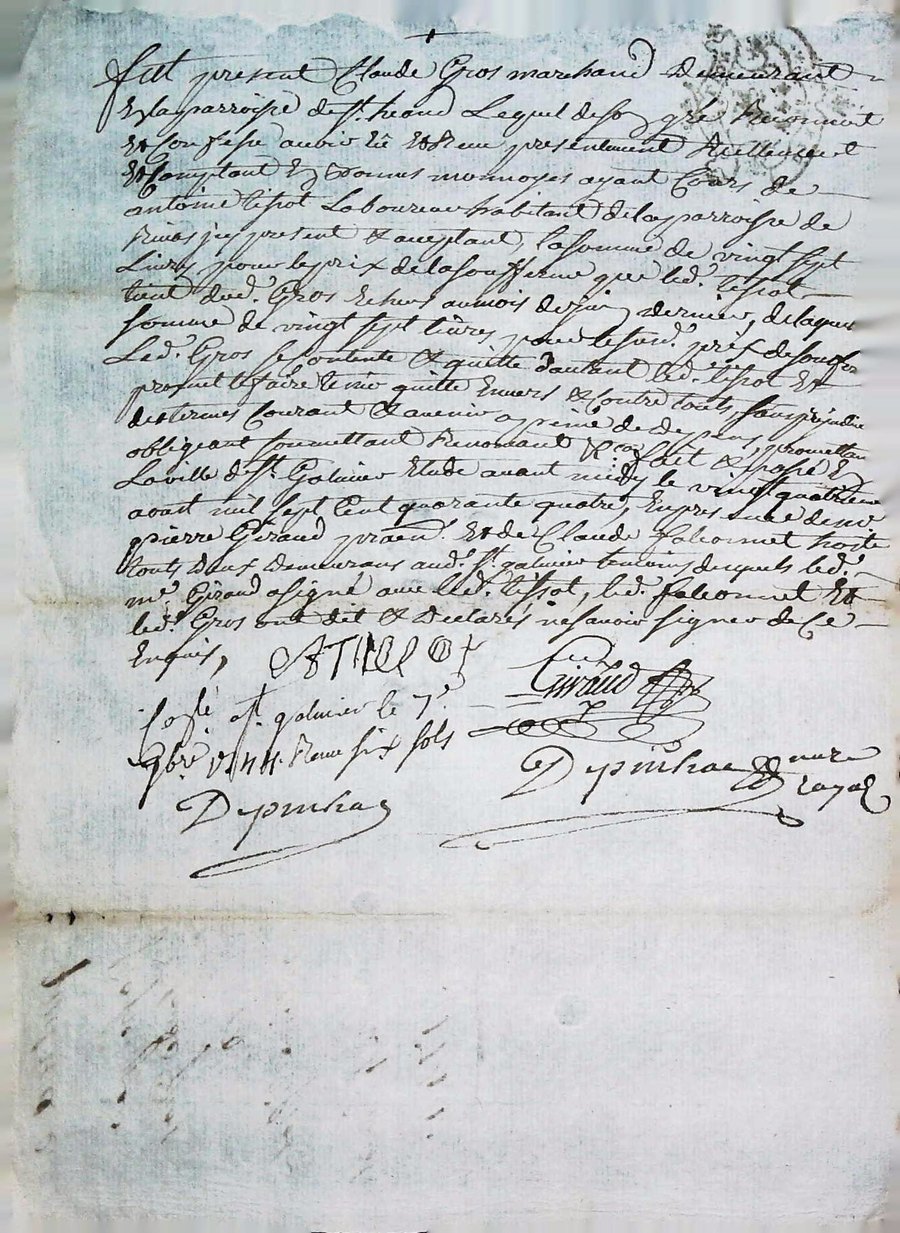 fut present Claude Gros marchand demeurant
En la parroisse de st. heand Lequel de son gré Reconnoit
Et Confesse avoir Eû Et Receu presentement Reellement
Et Comptant En bonnes monnoyes ayant Cours de
antoine tissot Laboureur habitant de la parroisse de
Rivas icy present & aceptant, la somme de vingt sept
Livres pour le prix de la soufferme que led. tissot
tient dud. Gros Echus au mois de juin dernier, de laquelle
somme de vingt sept livres pour le susd. prix de souferme
Led. Gros se contente & quitte d'autant led. tissot Et
promet le faire tenir quitte Envers & Contre touts, sans prejudice
des termes Courant & avenir a peine de depens, promettant
obligeant soumettant Renonçant &ca fait & passé En
La ville de st. Galmier Etude avant midy le vingt quatrieme
aoust mil sept Cent quarante quatre, En presence de me
pierre Giraud praen. Et de Claude falconnet hoste
touts deux demeurans aud. st. galmier temoins desquels led.
me. Giraud a signé avec led. tissot, led. falconnet Et
led. Gros ont dit & declarés ne savoir signer de Ce
Enquis,
ATISSOT
Giraud
Colé a st. galmier le 7e.
9bre 1744. Receu six sols
Depinhac nore royal
Depinhac